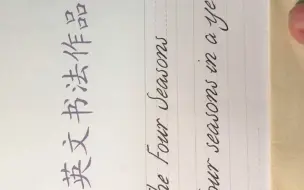 英文书法作品
he Four Seasons
our seasons in a ye